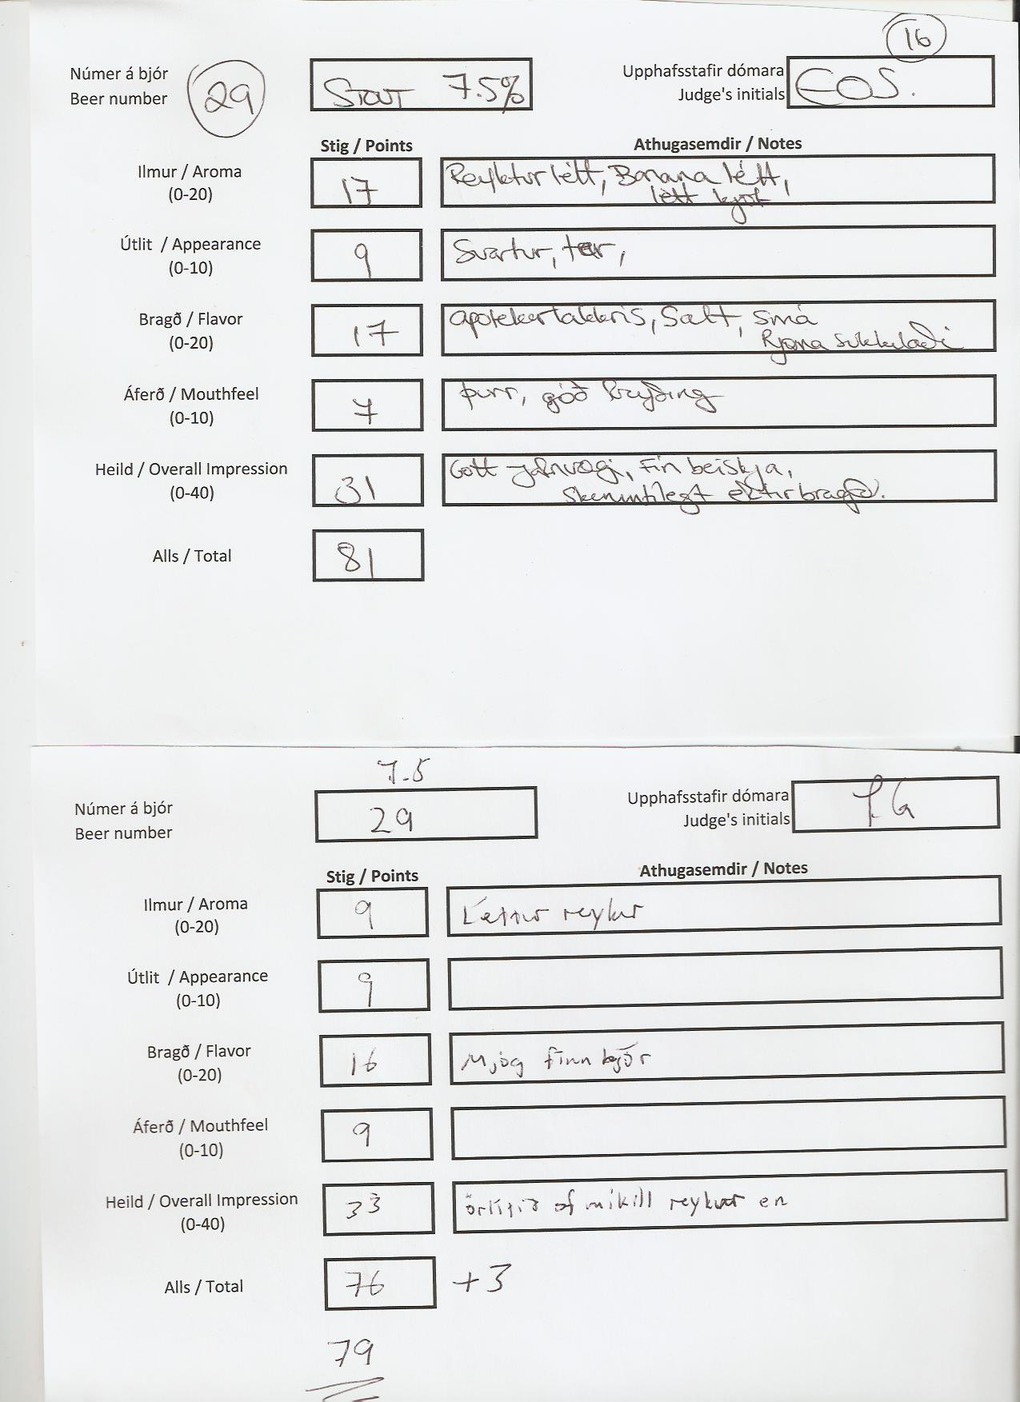 16
Númer á bjór
Beer number
29
STOUT 7.5%
Upphafsstafir dómara
Judge's initials
EOS.
Stig / Points
Athugasemdir / Notes
Ilmur / Aroma
(0-20)
17
Reyktur létt, Banana létt,
létt kjöt
Útlit / Appearance
(0-10)
9
Svartur, tær,
Bragð / Flavor
(0-20)
17
apótekartakkris, Salt, smá
Rjóma súkkulaði
Áferð / Mouthfeel
(0-10)
7
þurr, góð
Heild / Overall Impression
(0-40)
31
Gott jafnvægi, Fín beiskja,
Skemmtilegt eftirbragð.
Alls / Total
81
7.5
Númer á bjór
Beer number
29
Upphafsstafir dómara
Judge's initials
Stig / Points
Athugasemdir / Notes
Ilmur / Aroma
(0-20)
9
Léttur reykur
Útlit / Appearance
(0-10)
9
Bragð / Flavor
(0-20)
16
Mjög fínn bjór
Áferð / Mouthfeel
(0-10)
9
Heild / Overall Impression
(0-40)
33
örlítið of mikill reykur en
Alls / Total
76 +3
79